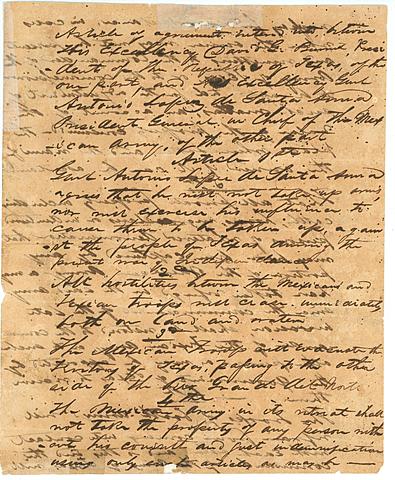 Article of agreement entered into between
His Excellency David G. Burnet Presi
dent of the Republic of Texas of the
one part, and his excellency Genl
Antonio Lopez de Santa Anna
President General in Chief of the Mex
ican Army, of the other part
Article 1st
Genl Antonio Lopez de Santa Anna
agrees that he will not take up arms
nor will exercise his influence to
cause them to be taken up, again
st the people of Texas during the
present war of
2d
All hostilities between the Mexican and
Texian troops will cease immediately
both on land and water
3d
The Mexican troops will evacuate the
Territory of Texas, passing to the other
side of the Rio Grande del Norte
4th
The Mexican Army in its retreat shall
not take the property of any person with
out his consent and just indemnification
using only such articles as